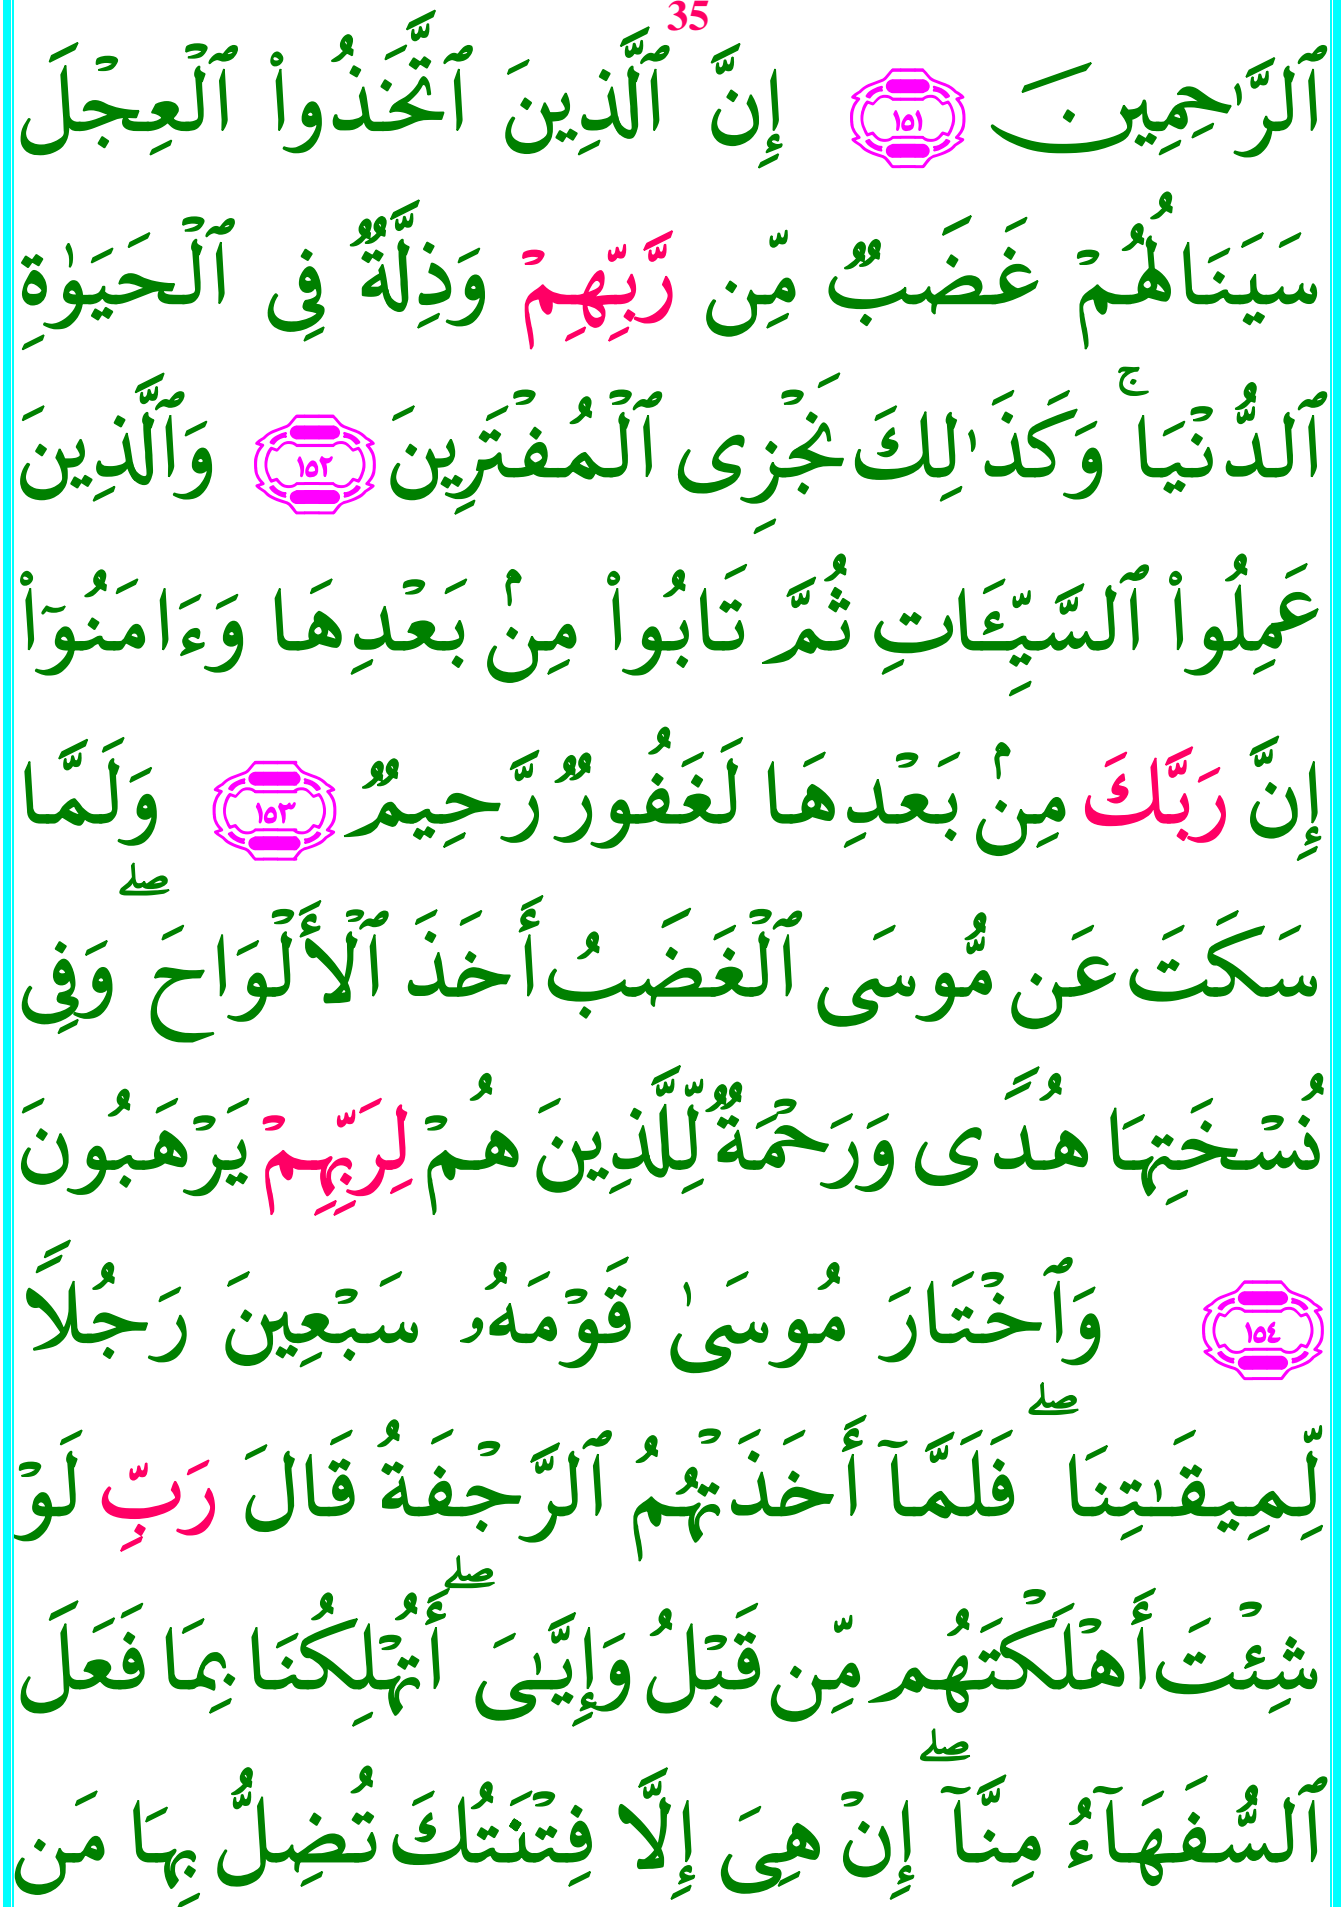 35
ٱلرَّٰحِمِينَ ١٥١ إِنَّ ٱلَّذِينَ ٱتَّخَذُوا۟ ٱلْعِجْلَ
سَيَنَالُهُمْ غَضَبٌ مِّن رَّبِّهِمْ وَذِلَّةٌ فِى ٱلْحَيَوٰةِ
ٱلدُّنْيَا ۚ وَكَذَٰلِكَ نَجْزِى ٱلْمُفْتَرِينَ ١٥٢ وَٱلَّذِينَ
عَمِلُوا۟ ٱلسَّيِّـَٔاتِ ثُمَّ تَابُوا۟ مِنۢ بَعْدِهَا وَءَامَنُوٓا۟
إِنَّ رَبَّكَ مِنۢ بَعْدِهَا لَغَفُورٌ رَّحِيمٌ ١٥٣ وَلَمَّا
سَكَتَ عَن مُّوسَى ٱلْغَضَبُ أَخَذَ ٱلْأَلْوَاحَ ۖ وَفِى
نُسْخَتِهَا هُدًى وَرَحْمَةٌ لِّلَّذِينَ هُمْ لِرَبِّهِمْ يَرْهَبُونَ
١٥٤ وَٱخْتَارَ مُوسَىٰ قَوْمَهُۥ سَبْعِينَ رَجُلًا
لِّمِيقَـٰتِنَا ۖ فَلَمَّآ أَخَذَتْهُمُ ٱلرَّجْفَةُ قَالَ رَبِّ لَوْ
شِئْتَ أَهْلَكْتَهُم مِّن قَبْلُ وَإِيَّـٰىَ ۖ أَتُهْلِكُنَا بِمَا فَعَلَ
ٱلسُّفَهَآءُ مِنَّآ ۖ إِنْ هِىَ إِلَّا فِتْنَتُكَ تُضِلُّ بِهَا مَن